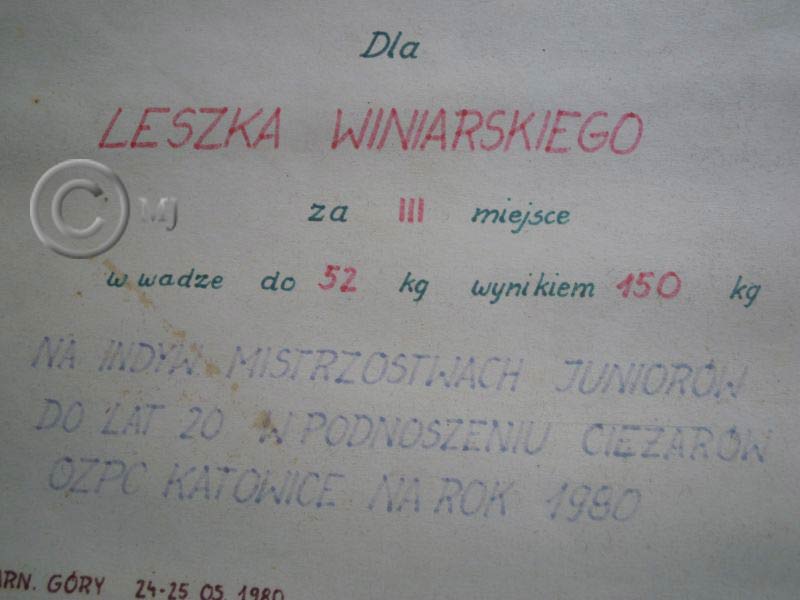 Dla
LESZKA WINIARSKIEGO
© MJ
za III miejsce
w wadze do 52 kg wynikiem 150 kg
NA INDYW. MISTRZOSTWACH JUNIORÓW
DO LAT 20 W PODNOSZENIU CIĘŻARÓW
OZPC KATOWICE NA ROK 1980
ARN. GÓRY 24-25 05. 1980